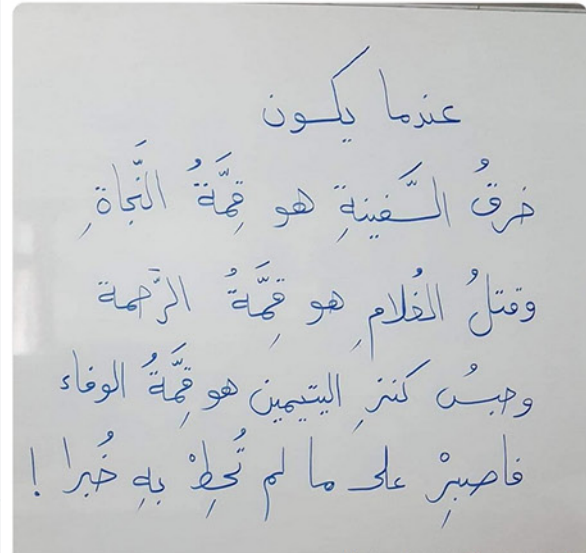 عندما يكون
خرقُ السَّفينةِ هو قِمَّةُ النَّجاةِ
وقتلُ الغُلامِ هو قِمَّةُ الرَّحمة
وحبسُ كنزِ اليتيمين هو قِمَّةُ الوفاء
فاصبِرْ على ما لم تُحِطْ بِهِ خُبرا !